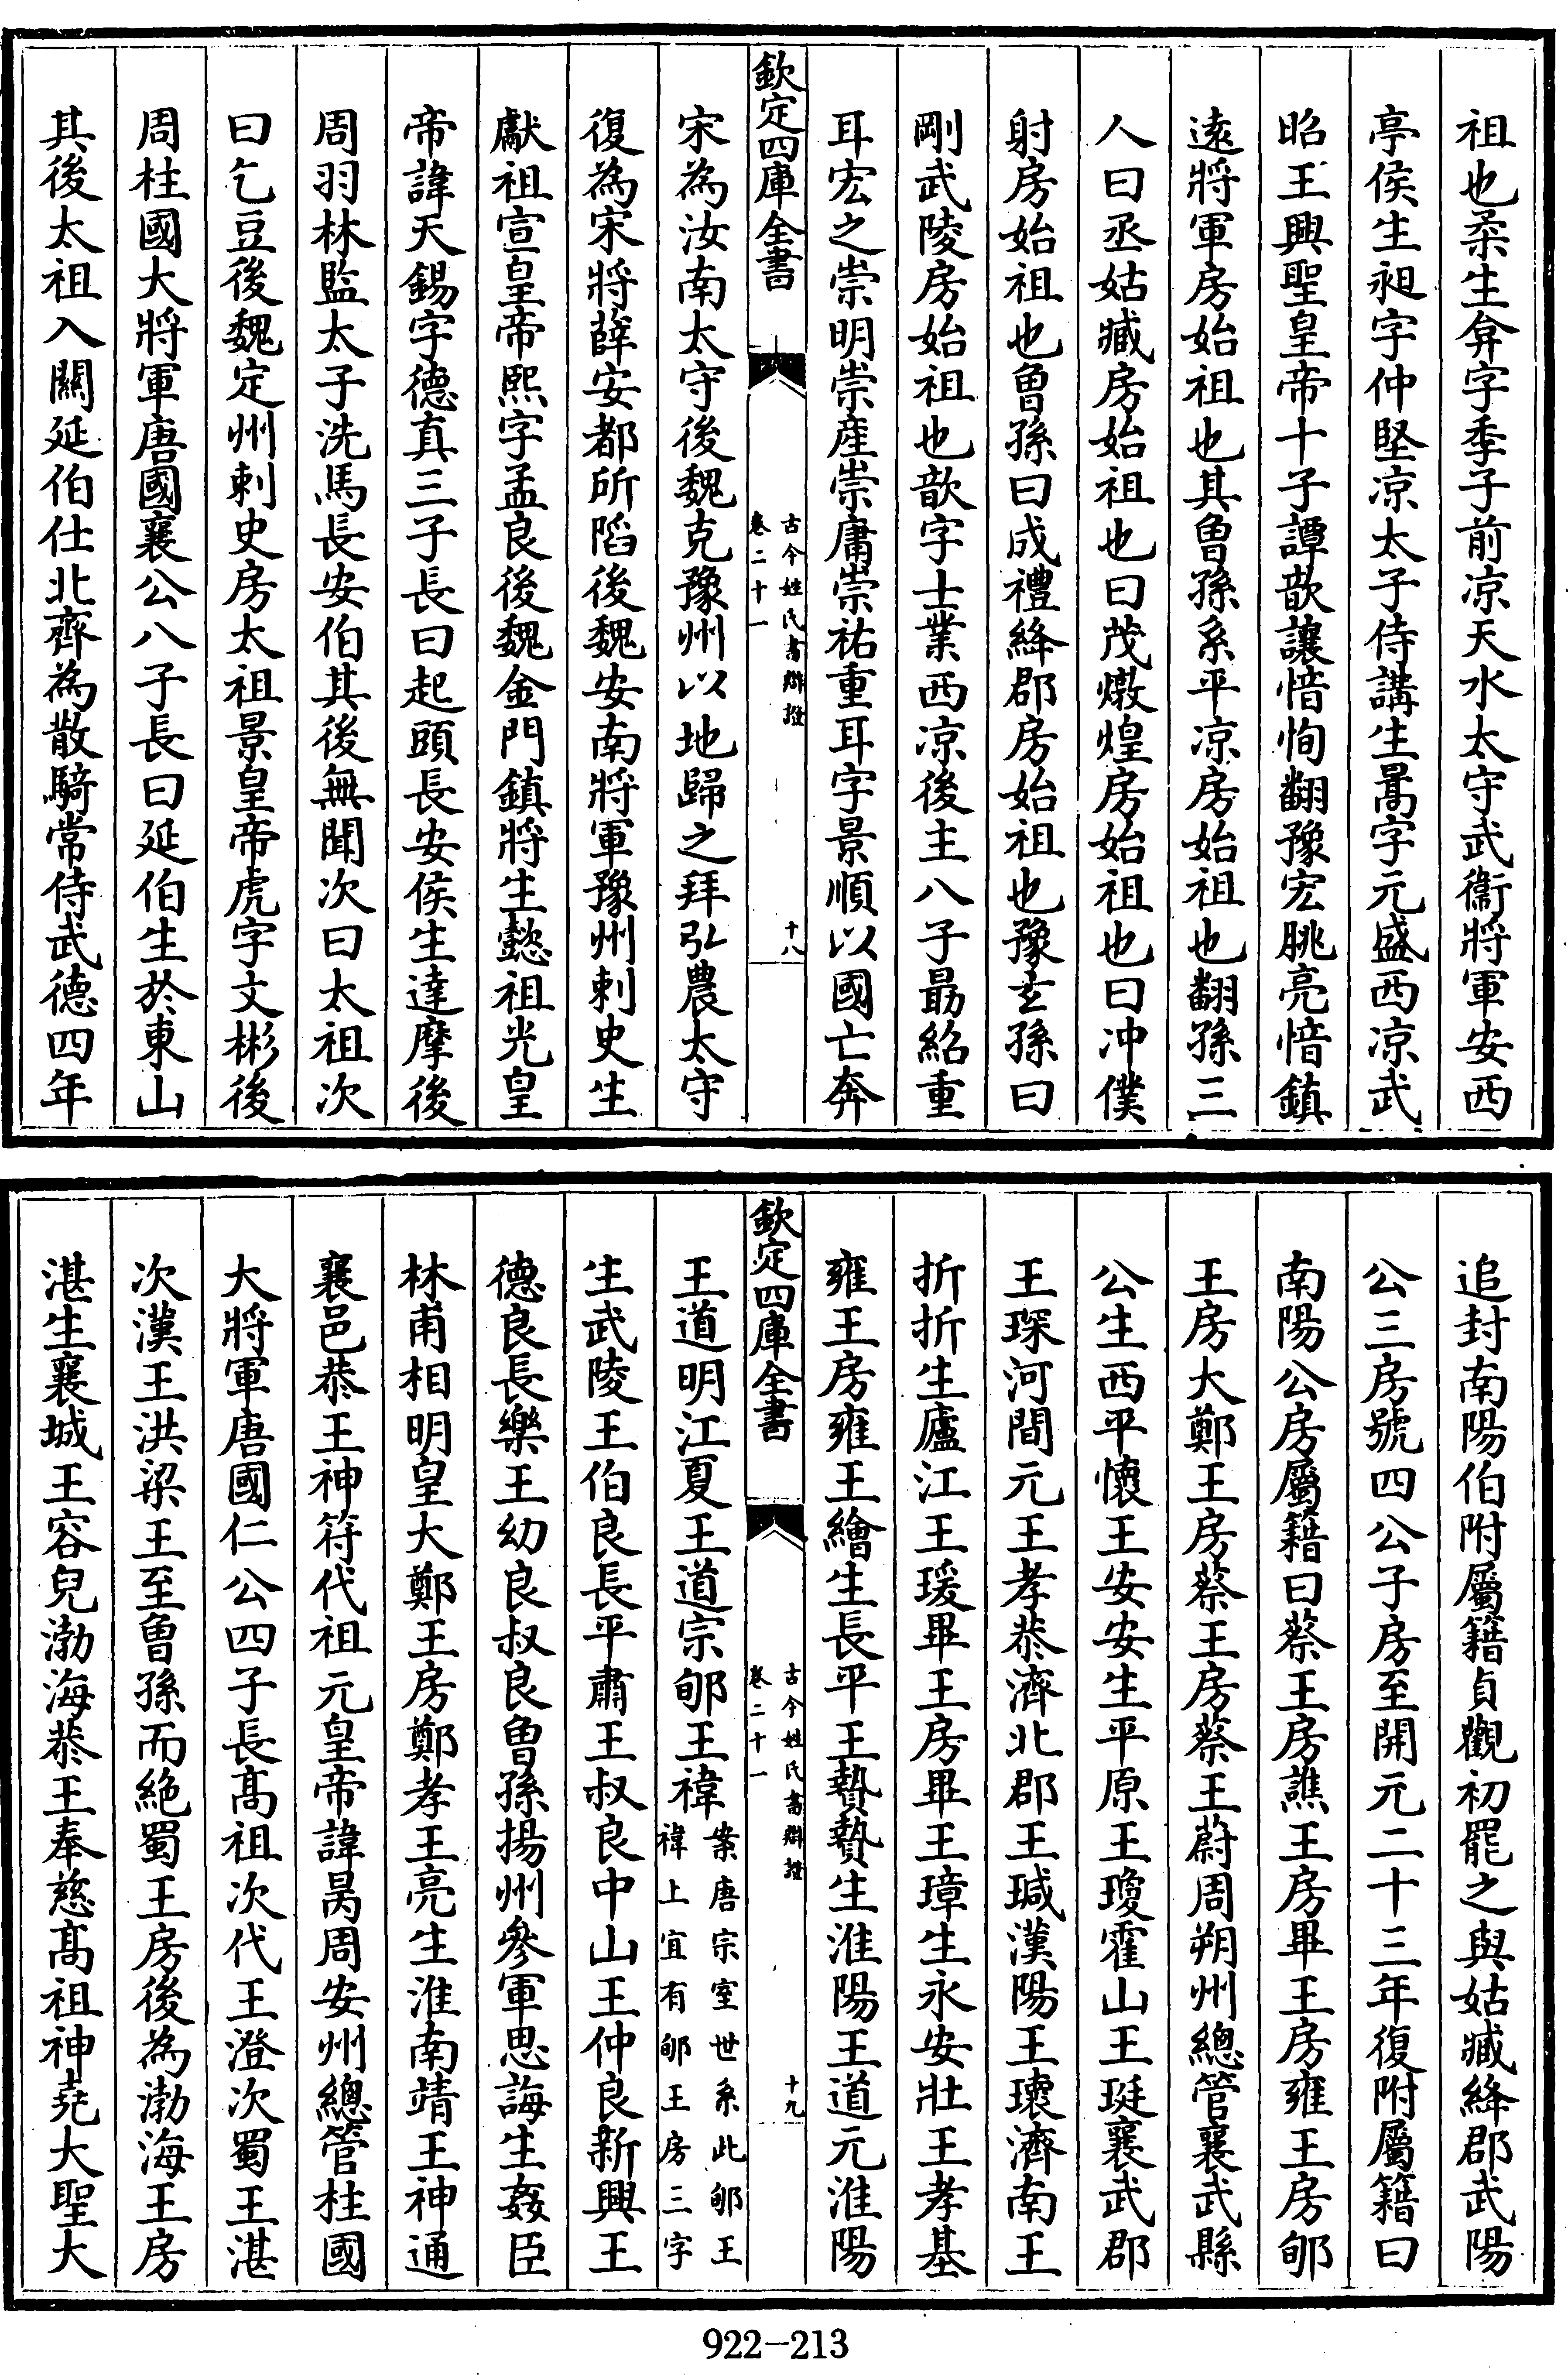 祖也柔生弇字季子前凉天水太守武衞將軍安西
亭侯生昶字仲堅凉太子侍講生暠字元盛西凉武
昭王興聖皇帝十子譚歆讓愔恂翻豫宏眺亮愔鎮
逺將軍房始祖也其曽孫系平凉房始祖也翻孫三
人曰丞姑臧房始祖也曰茂燉煌房始祖也曰冲僕
射房始祖也曽孫曰成禮絳郡房始祖也豫𤣥孫曰
剛武陵房始祖也歆字士業西凉後主八子勗紹重
耳宏之崇明崇産崇庸崇祐重耳字景順以國亡奔
欽定四庫全書
古今姓氏書辯證
卷二十一
十八
宋為汝南太守後魏克豫州以地歸之拜弘農太守
復為宋將薛安都所䧟後魏安南將軍豫州刺史生
獻祖宣皇帝熙字孟良後魏金門鎮將生懿祖光皇
帝諱天錫字德真三子長曰起頭長安侯生達摩後
周羽林監太子洗馬長安伯其後無聞次曰太祖次
曰乞豆後魏定州刺史房太祖景皇帝虎字文彬後
周柱國大將軍唐國襄公八子長曰延伯生於東山
其後太祖入關延伯仕北齊為散騎常侍武德四年
追封南陽伯附屬籍貞觀初罷之與姑臧絳郡武陽
公三房號四公子房至開元二十三年復附屬籍曰
南陽公房屬籍曰蔡王房譙王房畢王房雍王房郇
王房大鄭王房蔡王房蔡王蔚周朔州總管襄武縣
公生西平懐王安安生平原王瓊霍山王珽襄武郡
王琛河間元王孝恭濟北郡王瑊漢陽王瓌濟南王
折折生廬江王瑗畢王房畢王璋生永安壯王孝基
雍王房雍王繪生長平王贄贄生淮陽王道元淮陽
欽定四庫全書
古今姓氏書辯證
卷二十一
十九
王道明江夏王道宗郇王禕案唐宗室世系此郇王禕上宜有郇王房三字
生武陵王伯良長平肅王叔良中山王仲良新興王
德良長樂王幼良叔良曽孫揚州參軍思誨生姦臣
林甫相明皇大鄭王房鄭孝王亮生淮南靖王神通
襄邑恭王神符代祖元皇帝諱昺周安州總管柱國
大將軍唐國仁公四子長髙祖次代王澄次蜀王湛
次漢王洪梁王至曽孫而絶蜀王房後為渤海王房
湛生襄城王容兒渤海恭王奉慈髙祖神堯大聖大
922-213